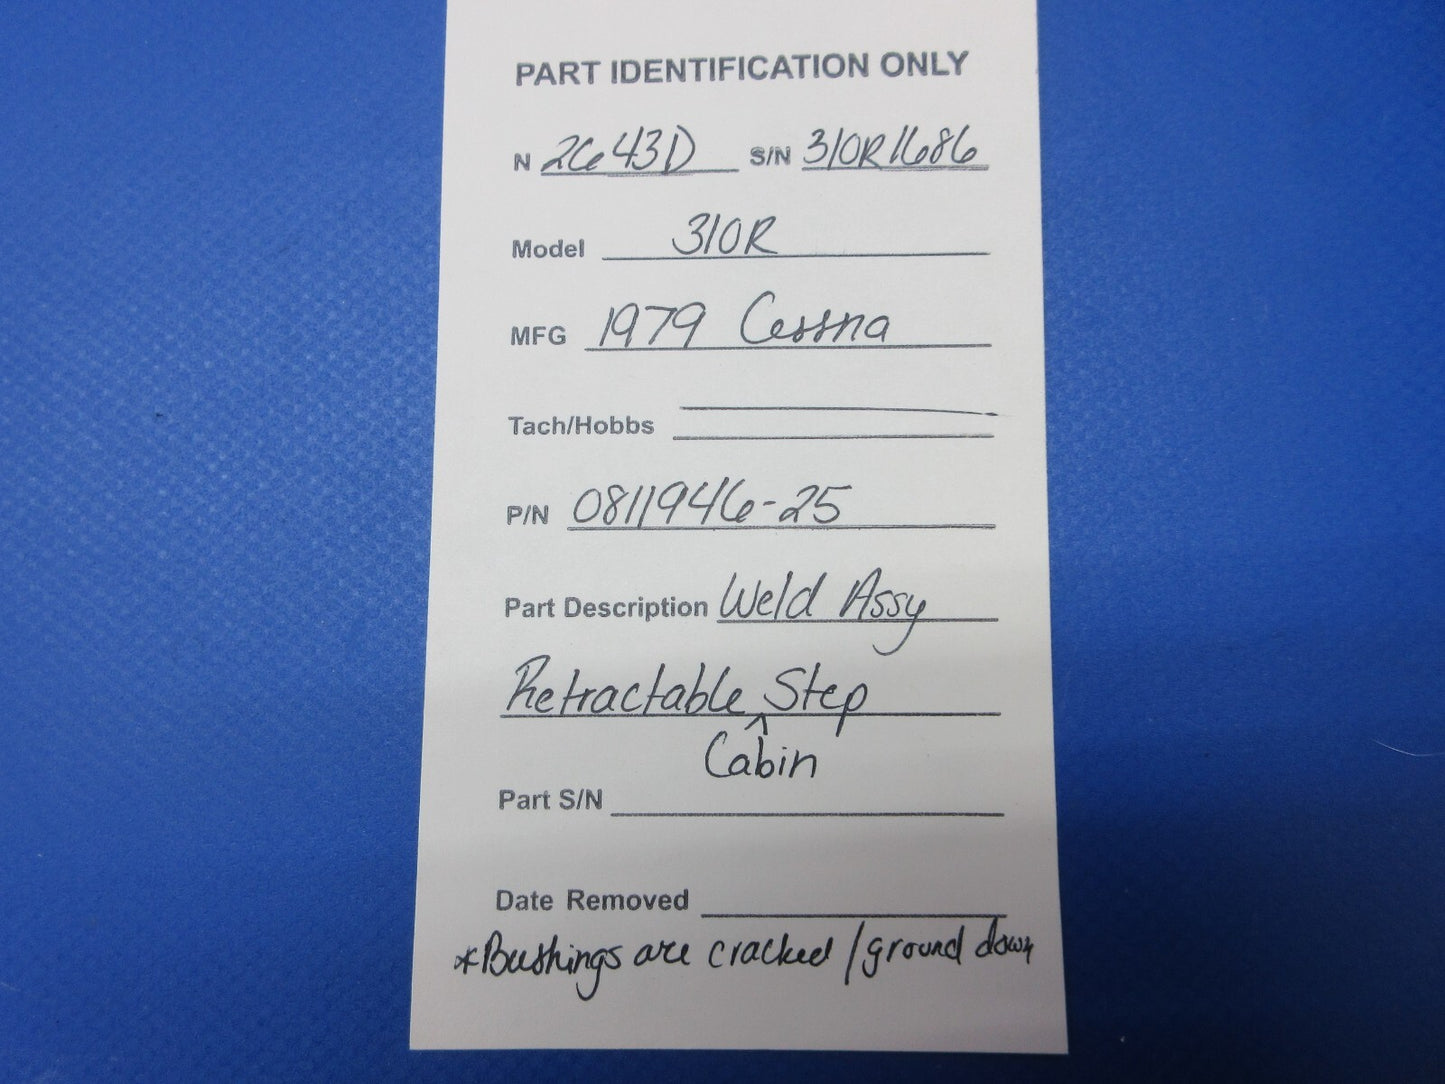 PART IDENTIFICATION ONLY
N 2643D S/N 310R1686
Model 310R
MFG 1979 Cessna
Tach/Hobbs
P/N 0811946-25
Part Description Weld Assy
Retractable ^ Step
Cabin
Part S/N
Date Removed
*Bushings are cracked / ground down